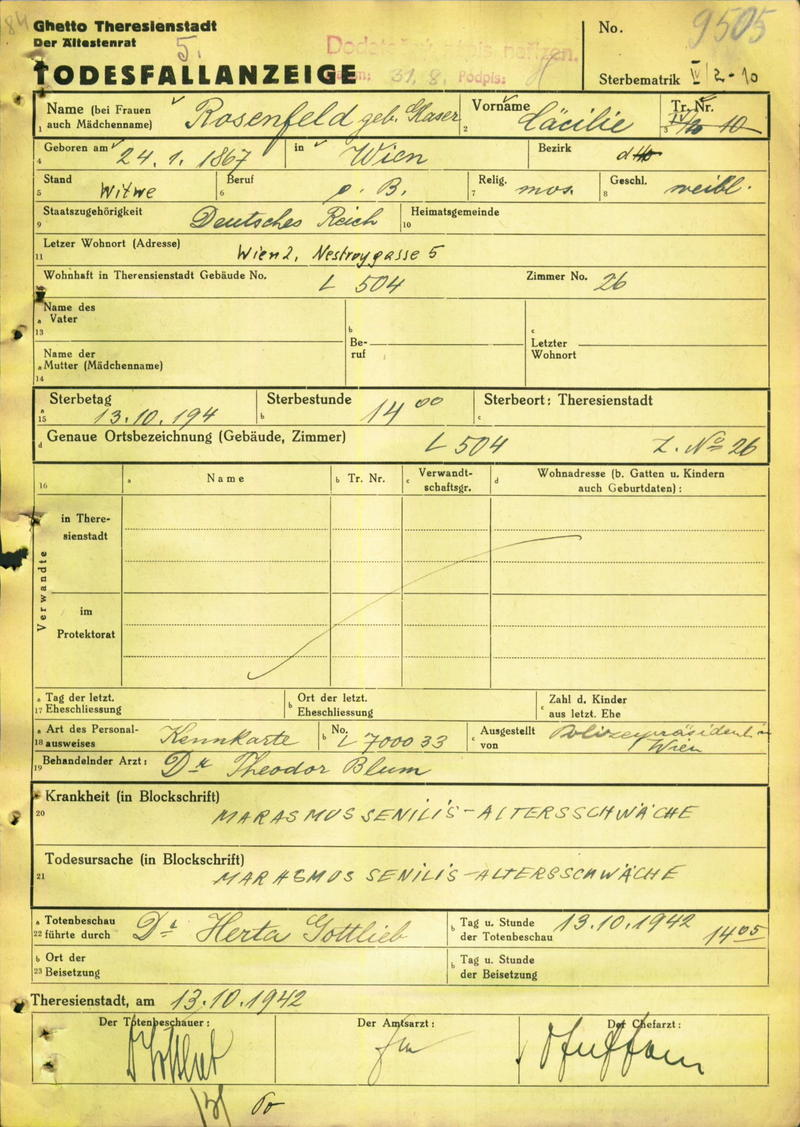 Ghetto Theresienstadt
Der Ältestenrat
5.
TODESFALLANZEIGE
31. 8. Podpis:
No. 9505
Sterbematrik IV/2-10
Name (bei Frauen auch Mädchenname) Rosenfeld geb. Glaser
1
Vorname Cäcilie
2
Tr. Nr. 10
3
Geboren am 24. 1. 1867
4
in Wien
Bezirk
Stand Witwe
5
Beruf o. B.
6
Relig. mos.
7
Geschl. weibl.
8
Staatszugehörigkeit Deutsches Reich
9
Heimatsgemeinde
10
Letzer Wohnort (Adresse) Wien 2, Nestroygasse 5
11
Wohnhaft in Therensienstadt Gebäude No. L 504
Zimmer No. 26
Name des
a Vater
13
b Be-
ruf
c Letzter
Wohnort
Name der
a Mutter (Mädchenname)
14
Sterbetag 13.10.194
a 15
Sterbestunde 14 00
b
Sterbeort: Theresienstadt
c
d Genaue Ortsbezeichnung (Gebäude, Zimmer) L 504 Z. No 26
16
a Name
b Tr. Nr.
c Verwandt-
schaftsgr.
d Wohnadresse (b. Gatten u. Kindern
auch Geburtdaten) :
Verwandte
in There-
sienstadt
im
Protektorat
a Tag der letzt.
17 Eheschliessung
b Ort der letzt.
Eheschliessung
c Zahl d. Kinder
aus letzt. Ehe
a Art des Personal-
18 ausweises Kennkarte
b No. L 7000 33
c Ausgestellt
von Polizeipräsident in
Wien
19 Behandelnder Arzt: Dr Theodor Blum
Krankheit (in Blockschrift)
20 MARASMUS SENILIS-ALTERSSCHWÄCHE
Todesursache (in Blockschrift)
21 MARASMUS SENILIS-ALTERSSCHWÄCHE
a Totenbeschau
22 führte durch Dr Herta Gottlieb
b Tag u. Stunde
der Totenbeschau 13.10.1942 14 05
b Ort der
23 Beisetzung
b Tag u. Stunde
der Beisetzung
Theresienstadt, am 13.10.1942
Der Totenbeschauer:
Der Amtsarzt:
Der Chefarzt: